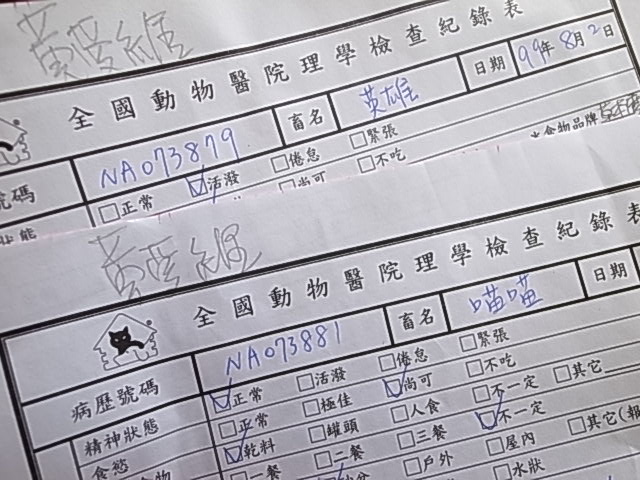 全國動物醫院理學檢查紀錄表
號碼 NA073879 畜名 英雄 日期 99年8月2日
狀態 □正常 ☑活潑 □倦怠 □緊張
□尚可 □不吃 *食物品牌
全國動物醫院理學檢查紀錄表
病歷號碼 NA073881 畜名 喵喵 日期
精神狀態 ☑正常 □活潑 □倦怠 □緊張
食慾 □正常 □極佳 ☑尚可 □不吃
☑乾料 □罐頭 □人食 □不一定 □其它
□一餐 □二餐 □三餐 ☑不一定 □其它(報
□戶外 □屋內
□水狀